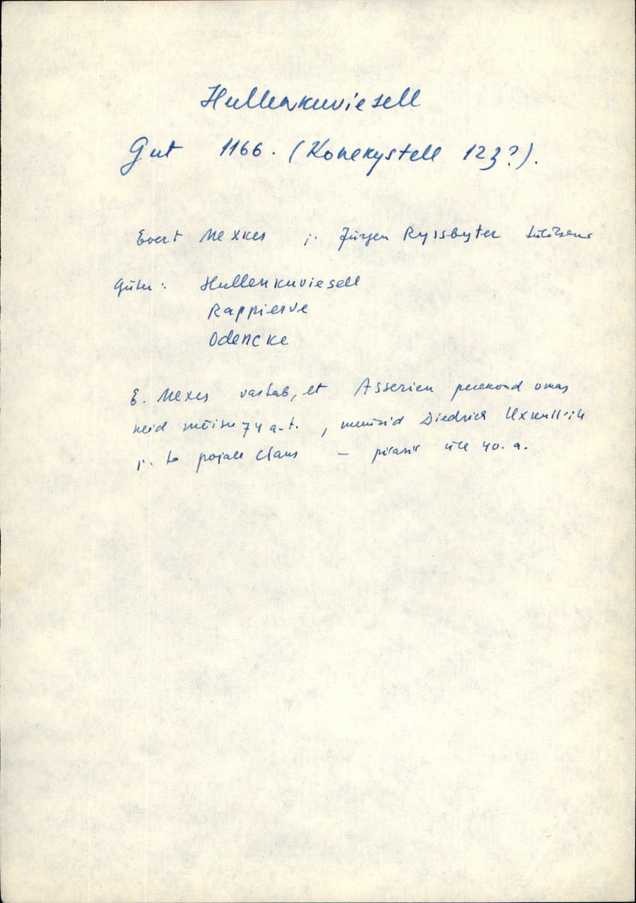 Hullenkuviesell
Gut 1166. (Konekystell 123?).
Evert Mexkes j. Jürgen Ryssbyter
Güter: Hullenkuviesell
Rappierve
Odencke
E. Mexes vastab, et Asserien perekond omas
neid mõisu 74 a.t., müüsid Diedrich Uxkull'ile
j. ta pojale Claus – pärast üle 40. a.